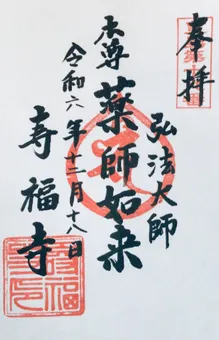 奉拝
弘法大師
本尊
薬師如来
令和六年十二月十八日
寿福寺